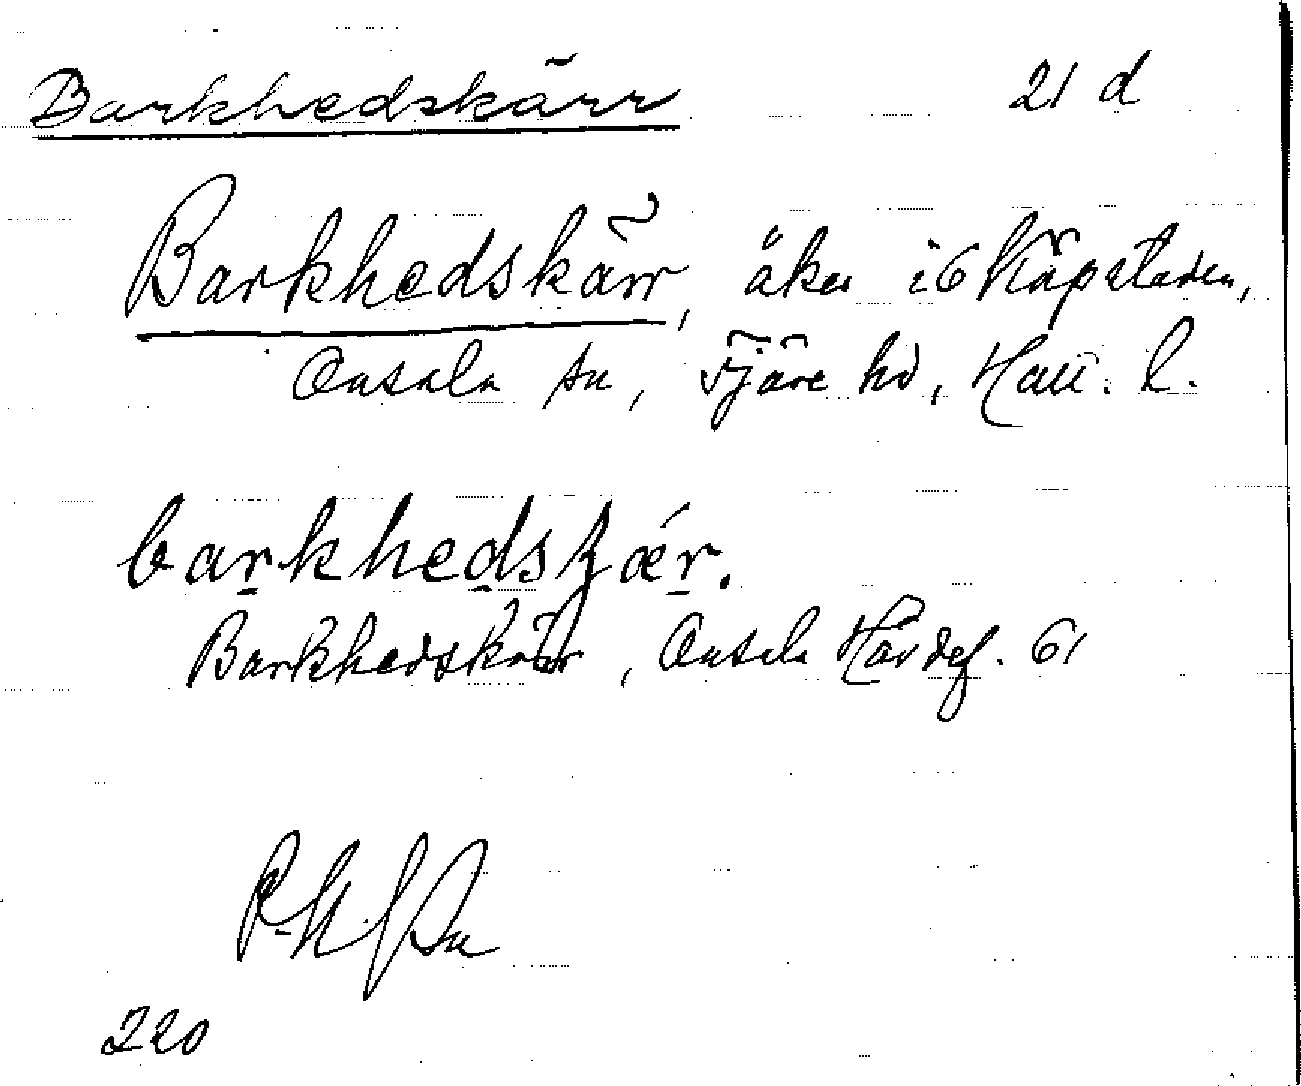 Barkhedskärr 21 d
Barkhedskärr, åker i 6 Kåpstaden,
Onsala sn, Fjäre hd, Hall. l.
barkhedskǽr.
Barkhedskärr, Onsala Hdr def. 61
220